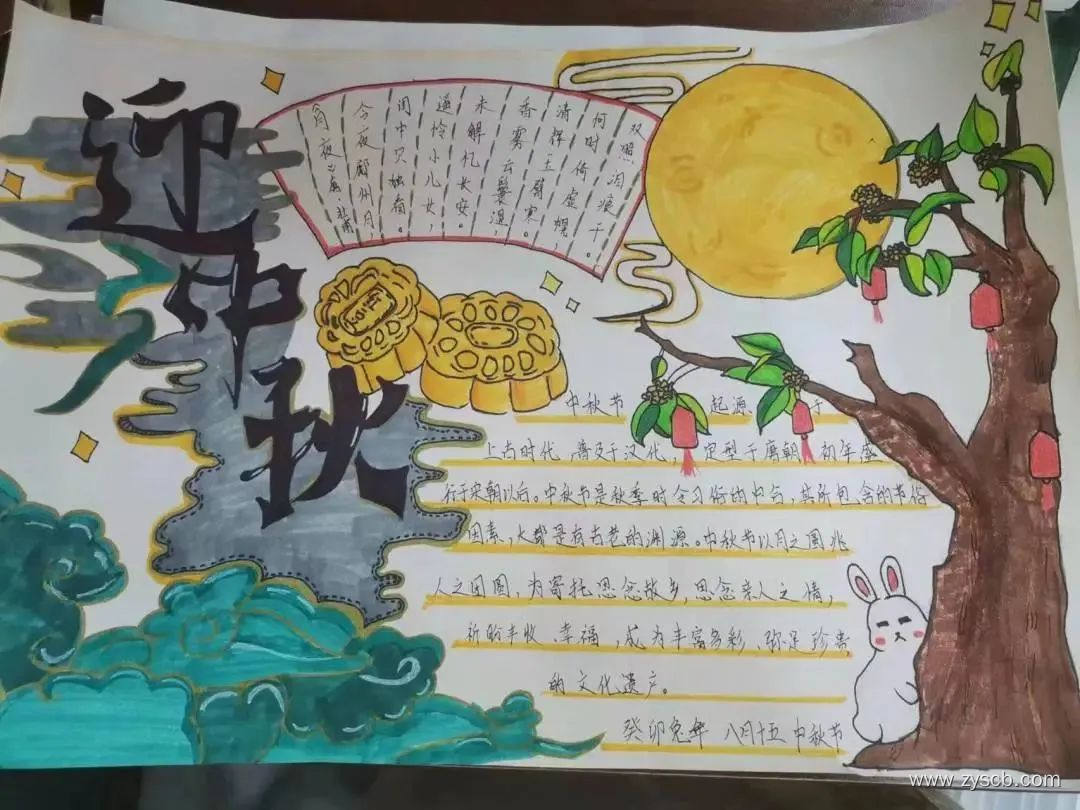 迎中秋
月夜 杜甫
今夜鄜州月,
闺中只独看。
遥怜小儿女,
未解忆长安。
香雾云鬟湿,
清辉玉臂寒。
何时倚虚幌,
双照泪痕干。
中秋节 起源 于
上古时代,普及于汉代,定型于唐朝初年盛
行于宋朝以后。中秋节是秋季时令习俗的中合,其所包含的节俗
因素,大都是有古老的渊源。中秋节以月之圆兆
人之团圆,为寄托思念故乡,思念亲人之情,
祈盼丰收、幸福,成为丰富多彩,弥足珍贵
的文化遗产。
癸卯兔年 八月十五 中秋节
www.zyscb.com